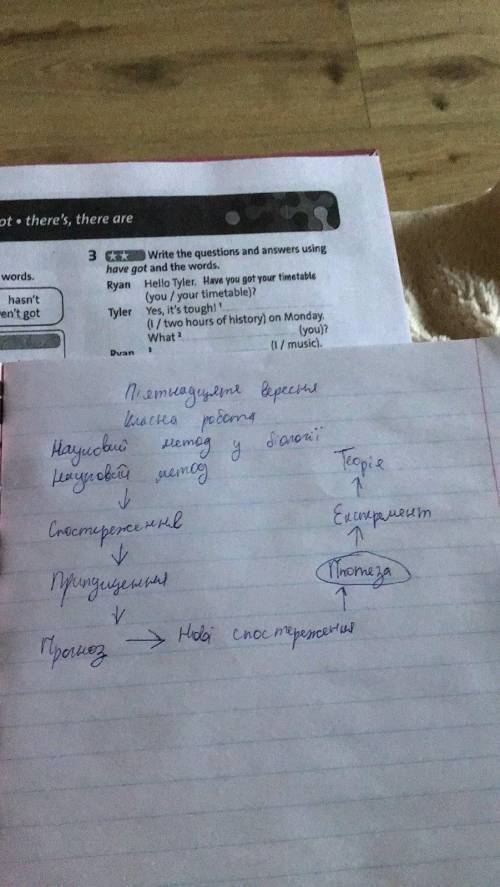 ot • there's, there are
words.
hasn't
en't got
3 ★★ Write the questions and answers using
have got and the words.
Ryan Hello Tyler. Have you got your timetable
(you / your timetable)?
Tyler Yes, it's tough! 1
(I / two hours of history) on Monday.
What 2 (you)?
Ryan 3 (I / music).
Пʼятнадцяте вересня
Класна робота
Науковий метод у біології
Науковий метод
↓
Спостереження
↓
Припущення
↓
Прогноз → Нові спостереження
↑
Гіпотеза
↑
Експеремент
↑
Теорія